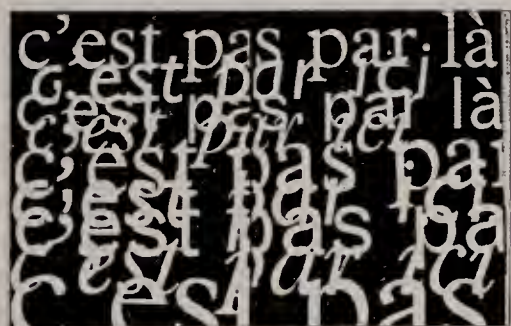 c'est pas par là
c'est par ici
c'est pas par là
c'est par ici
c'est pas par
c'est par ici
c'est pas pa
c'est par ici
c'est pas